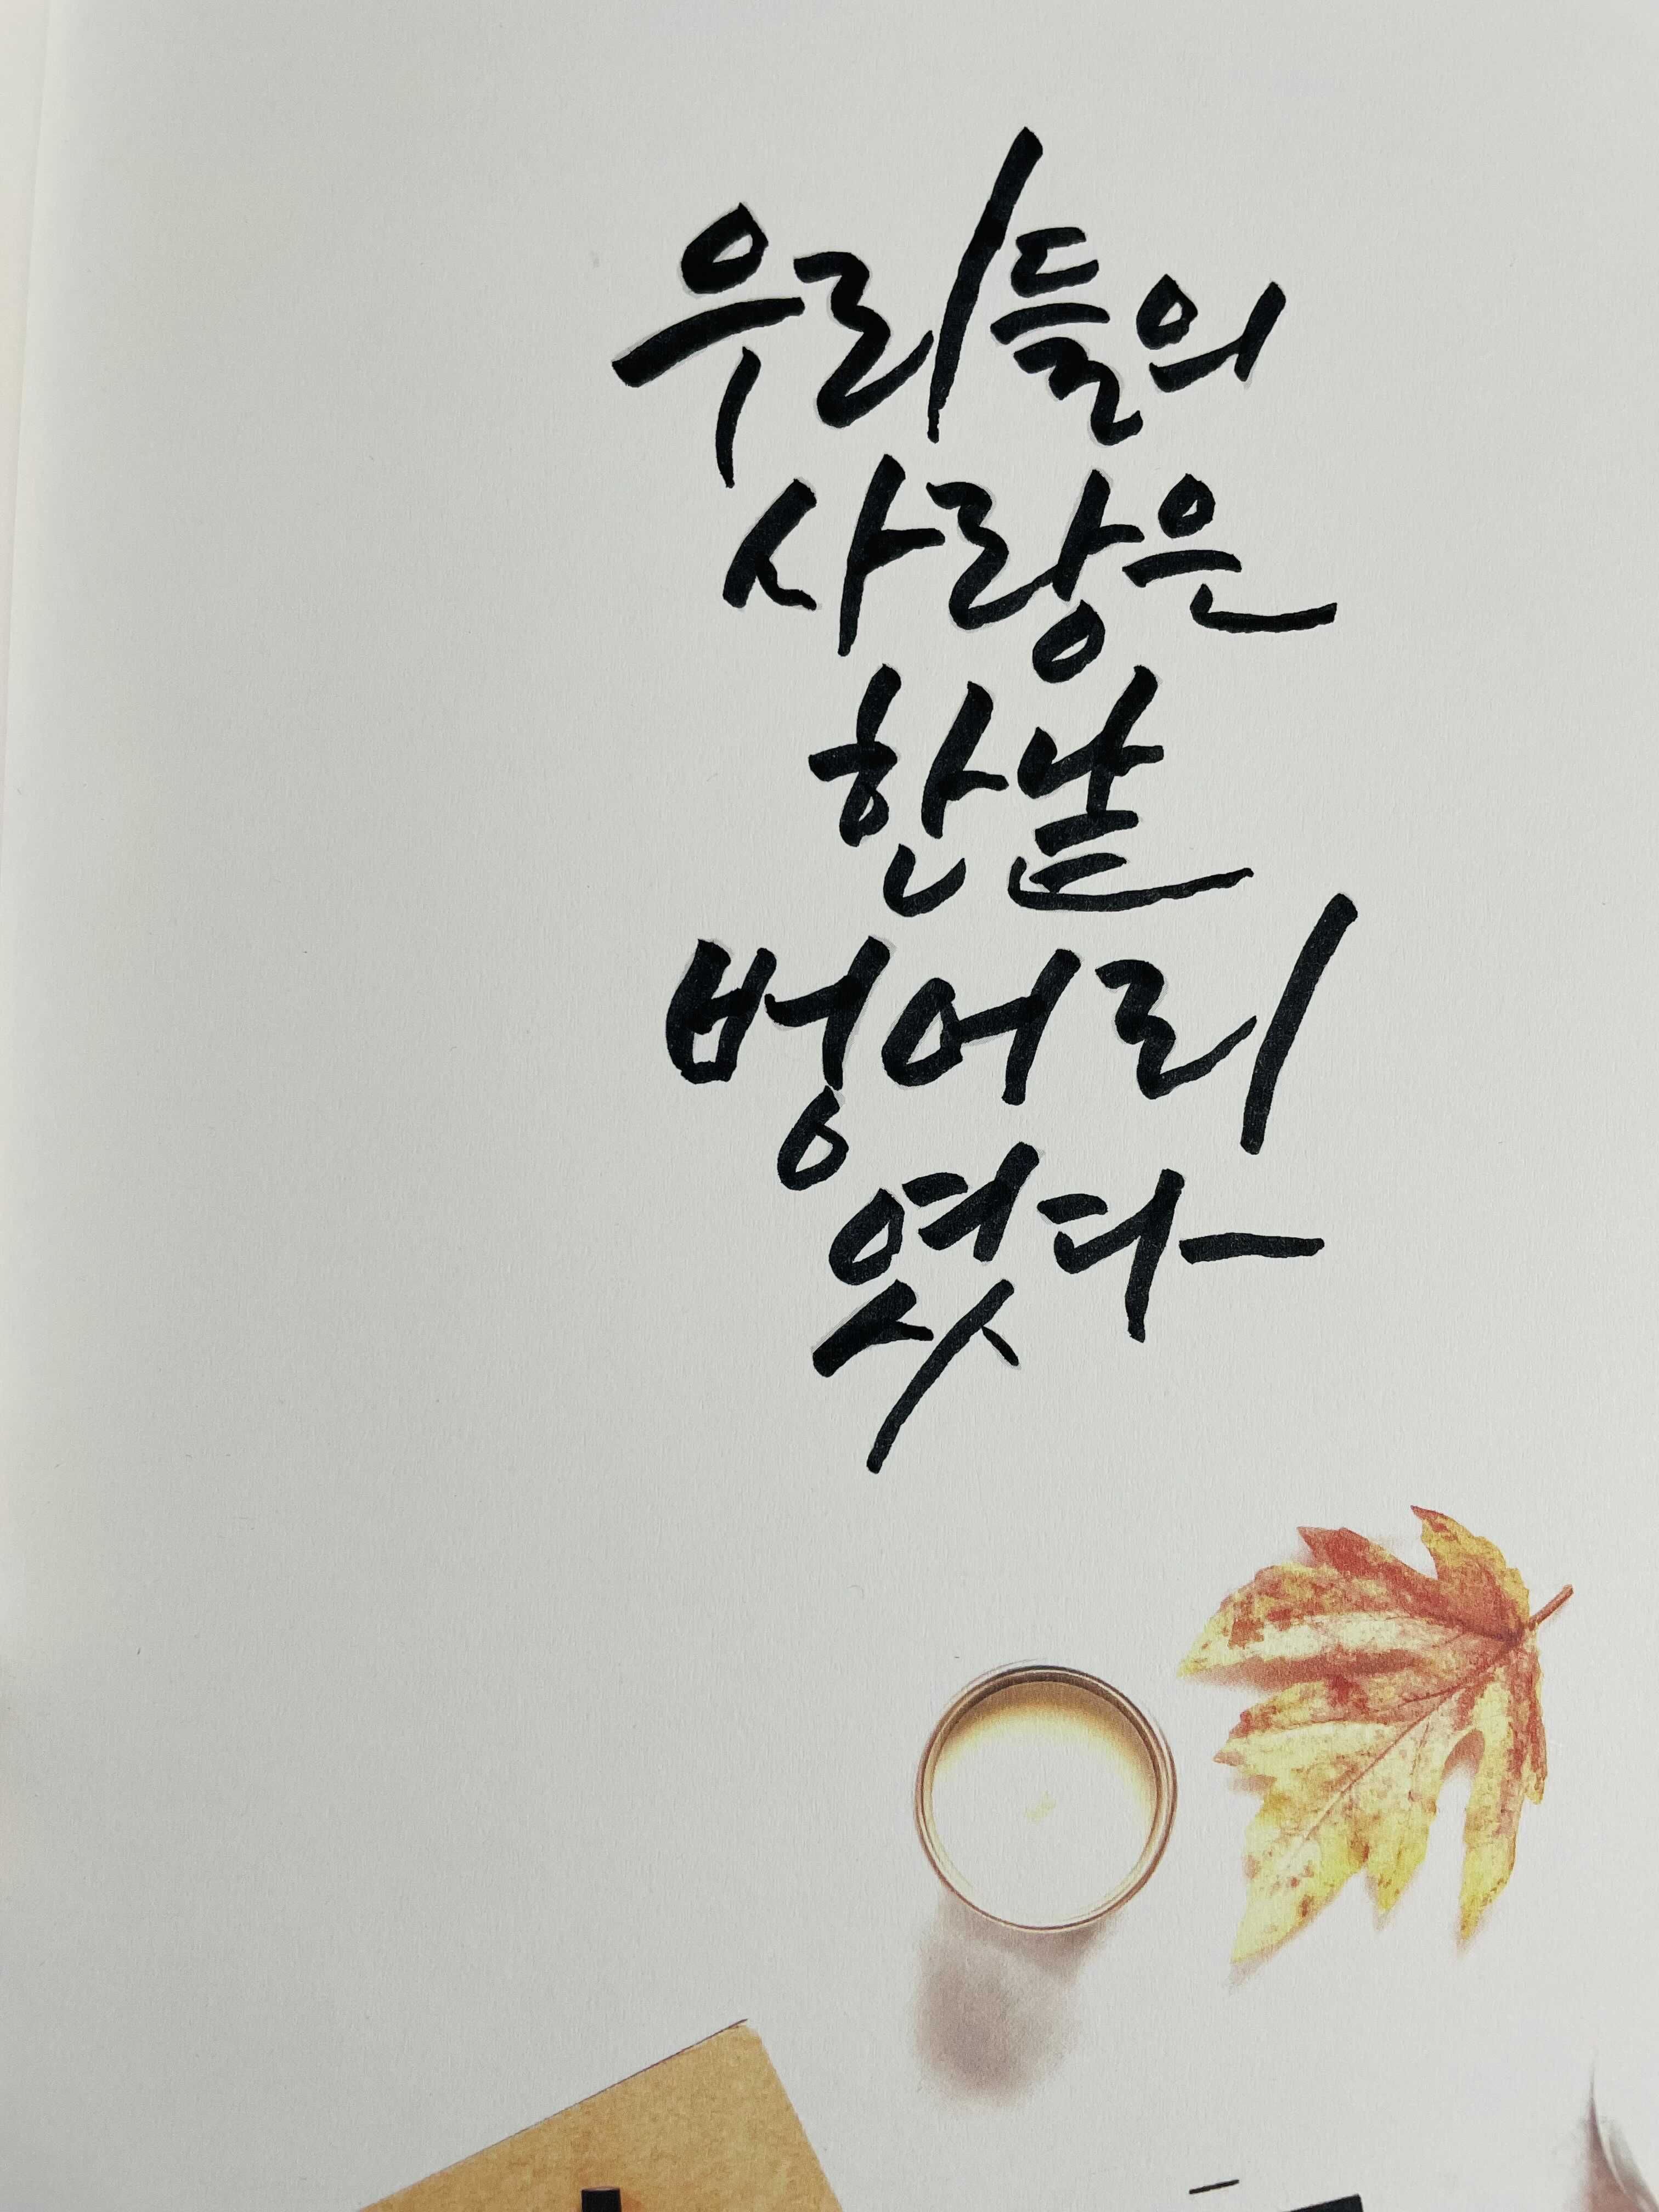 우리들의
사랑은
한낱
벙어리
였다